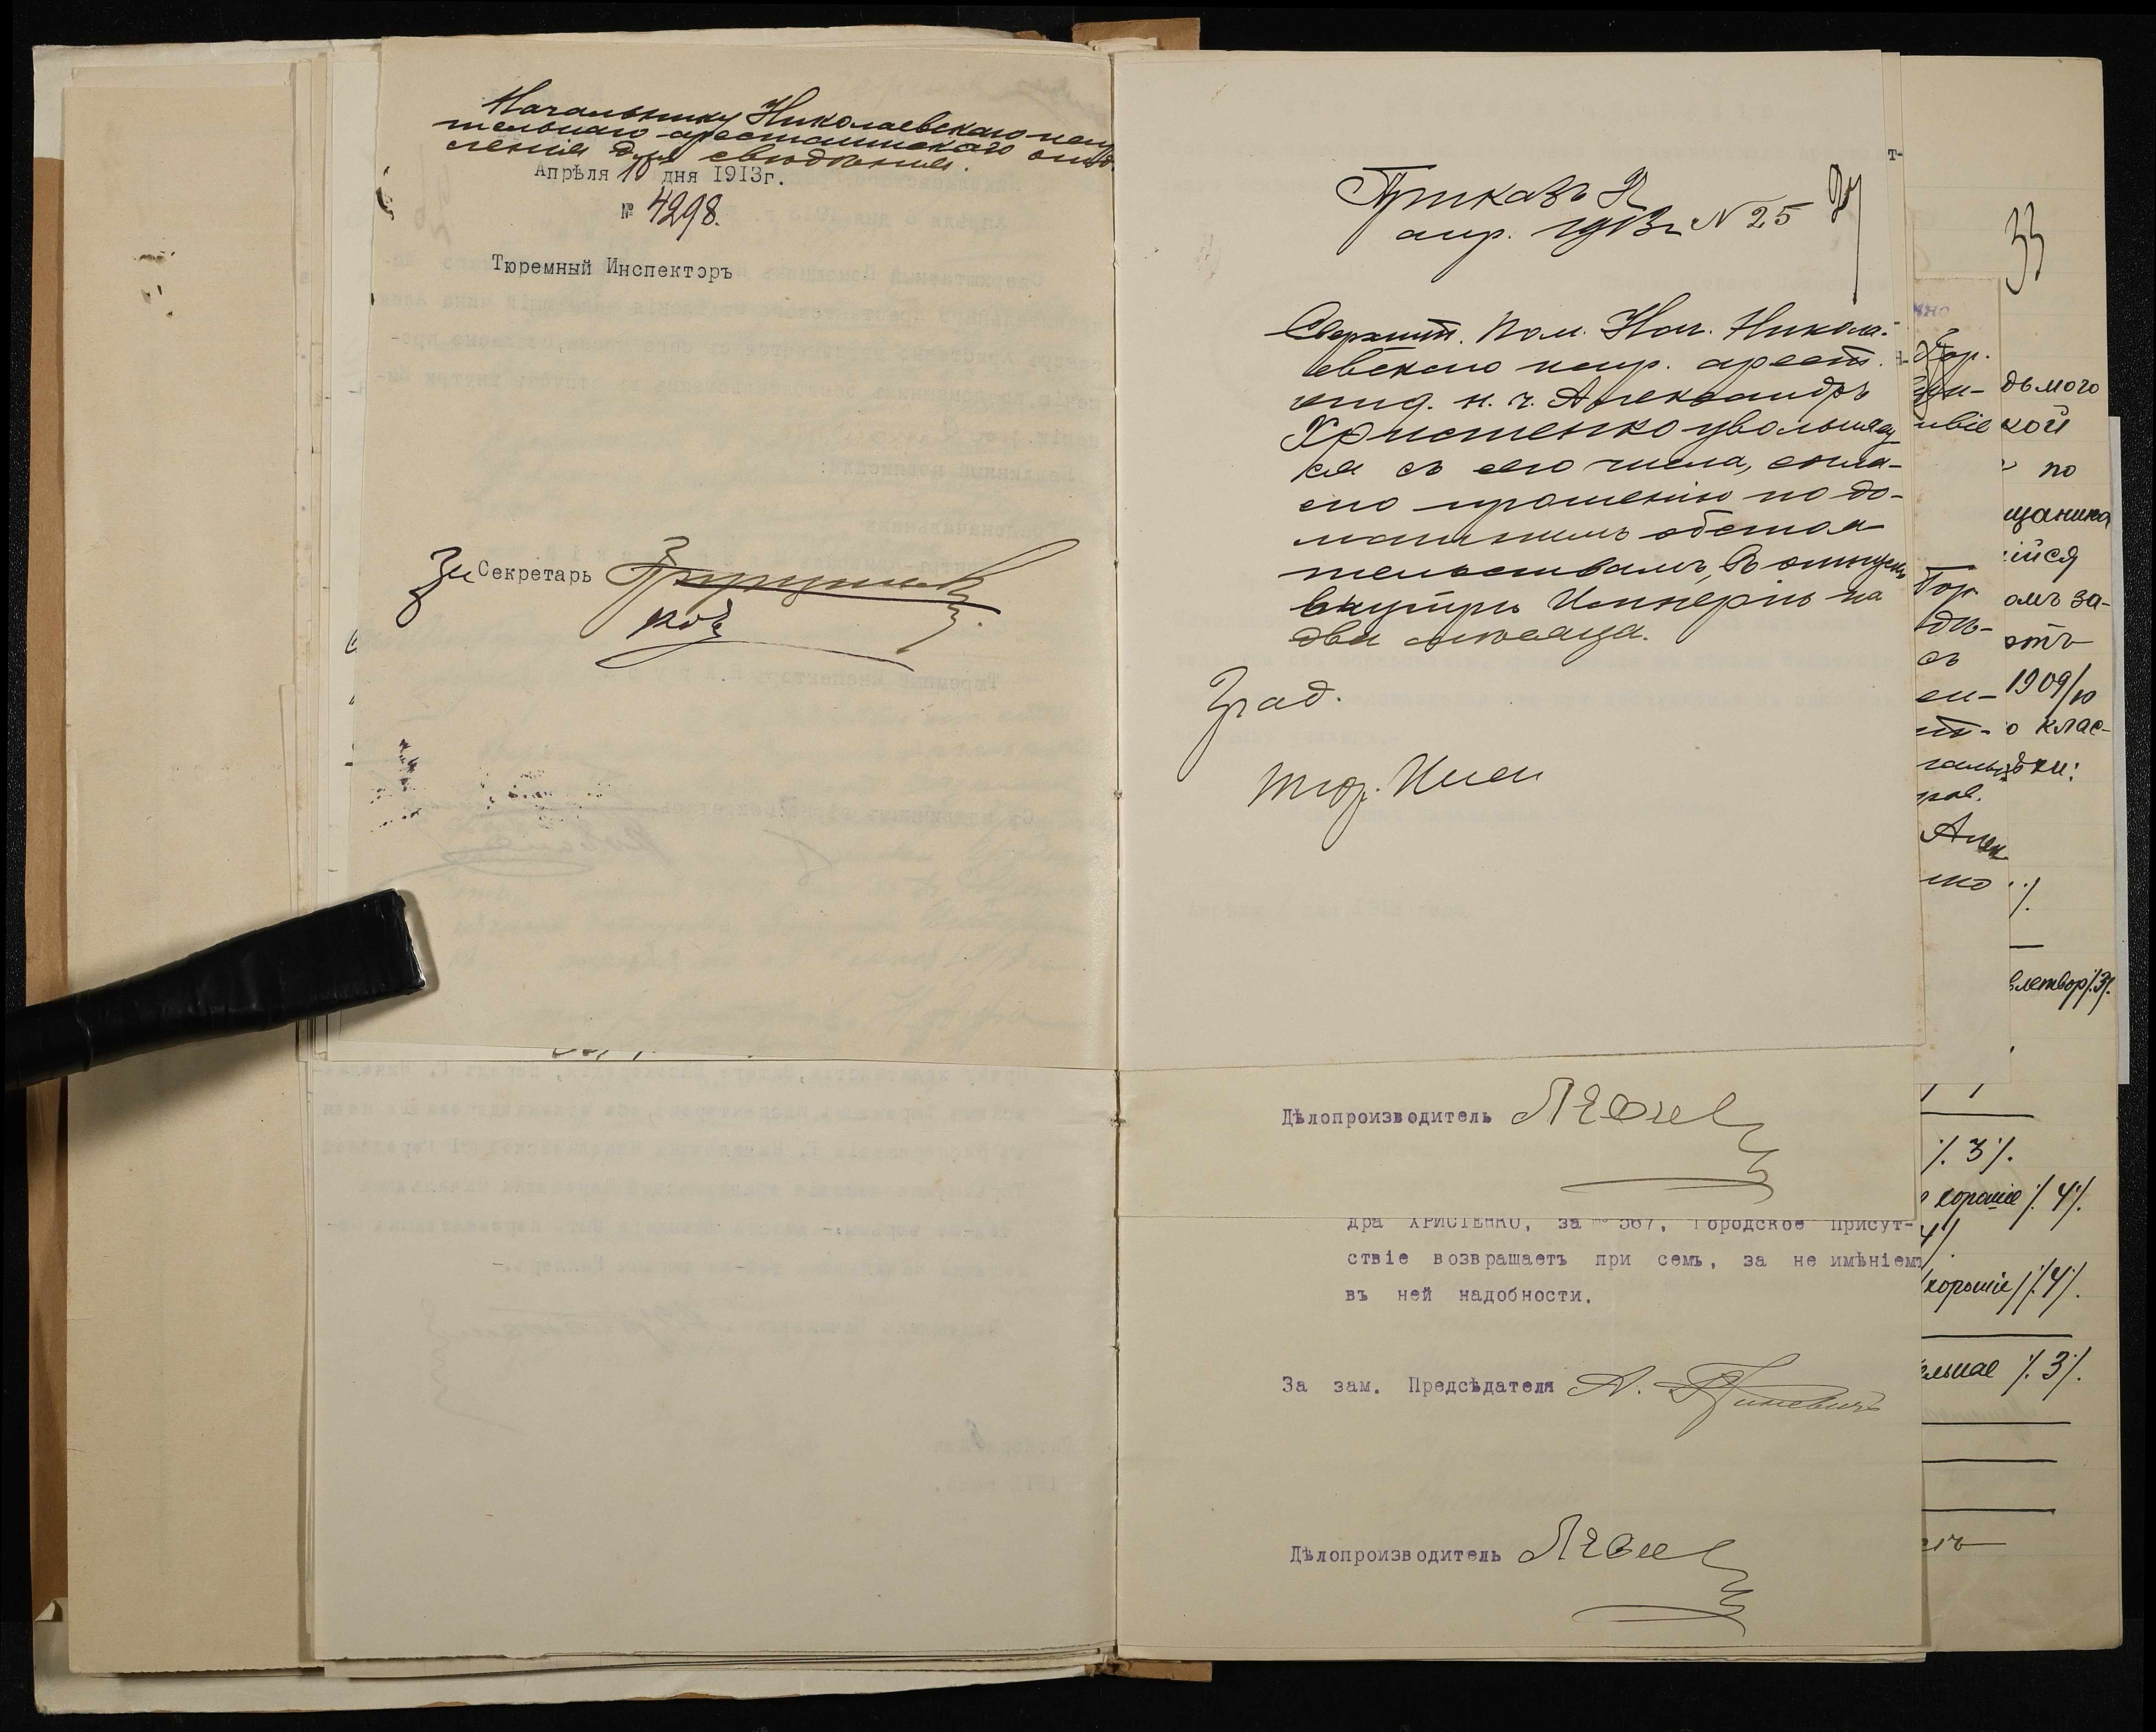 Начальнику Николаевскаго испра
тельнаго арестантскаго отд.
ленія для свѣдѣнія.
Апрѣля 10 дня 1913г.
№ 4298.
Тюремный Инспекторъ
Секретарь
Приказъ
апр. 1913 г. N 25
Сверхшт. Пом. Нач. Никола-
евскаго испр. арест.
отд. н. ч. Александръ
Христенко увольняет
ся съ сего числа, согла-
сно прошенію по до-
машнимъ обстоя
тельствамъ, въ отпускъ
внутрь Имперіи на
два мѣсяца.
Град.
Тюр. Инсп
Дѣлопроизводитель
дра ХРИСТЕНКО, за № 567, Городское Присут-
ствіе возвращаетъ при семъ, за не имѣніемъ
въ ней надобности.
За зам. Предсѣдателя А.
Дѣлопроизводитель
33
дьмого
кой
по
щаника
ійся
омъ за-
1909/10
о клас-
влетвор /.3/.
/. 3 /.
хорошіе /. 4 /.
хорошіе /. 4 /.
ельное /. 3 /.